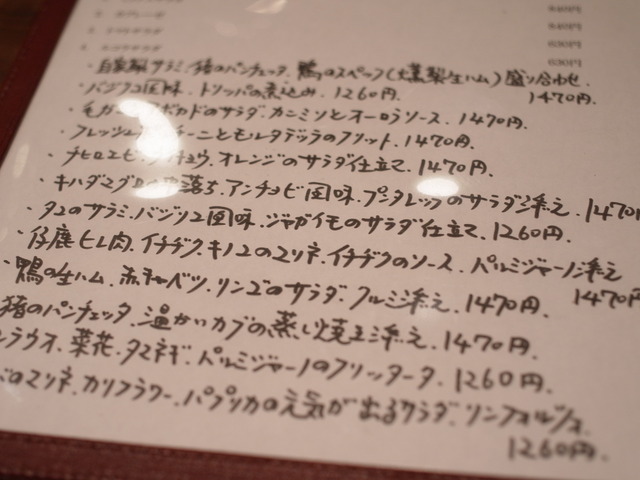 840円
840円
630円
630円
・自家製サラミ、猪のパンチェッタ、鴨のスペック(燻製生ハム)盛り合わせ. 1470円.
・バジリコ風味、トリッパの煮込み. 1260円.
・毛ガニ ボカドのサラダ、カニミソとオーロラソース. 1470円.
・フレッシュ チーニとモルタデッラのフリット. 1470円.
・チヒロエビ、 キュウ、オレンジのサラダ仕立て. 1470円.
・キハダマグロの 落ち、アンチョビ風味、プンタレッラのサラダ添え. 1470
・タコのサラミ、バジリコ風味、ジャガイモのサラダ仕立て. 1260円.
・仔鹿ヒレ肉、イチヂク、キノコのマリネ、イチヂクのソース、パルミジャーノ添え 1470円
・鴨の生ハム、赤キャベツ、リンゴのサラダ、クルミ添え. 1470円.
猪のパンチェッタ、温かいカブの蒸し焼き添え. 1470円.
シラウオ、菜花、タマネギ、パルミジャーノのフリッタータ. 1260円.
のマリネ、カリフラワー、パプリカの元気が出るサラダ、リンフォルツォ. 1260円.